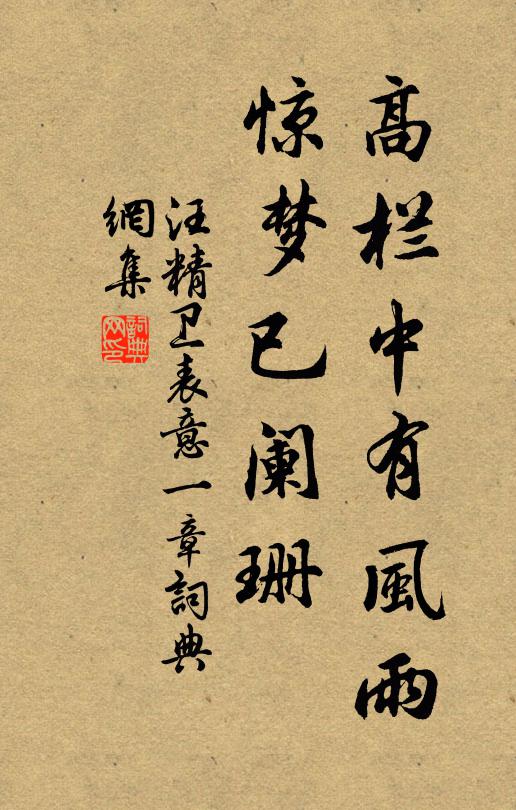 高栏中有風雨
惊梦已阑珊
汪精卫表意一章詞典
網集
詞典网印